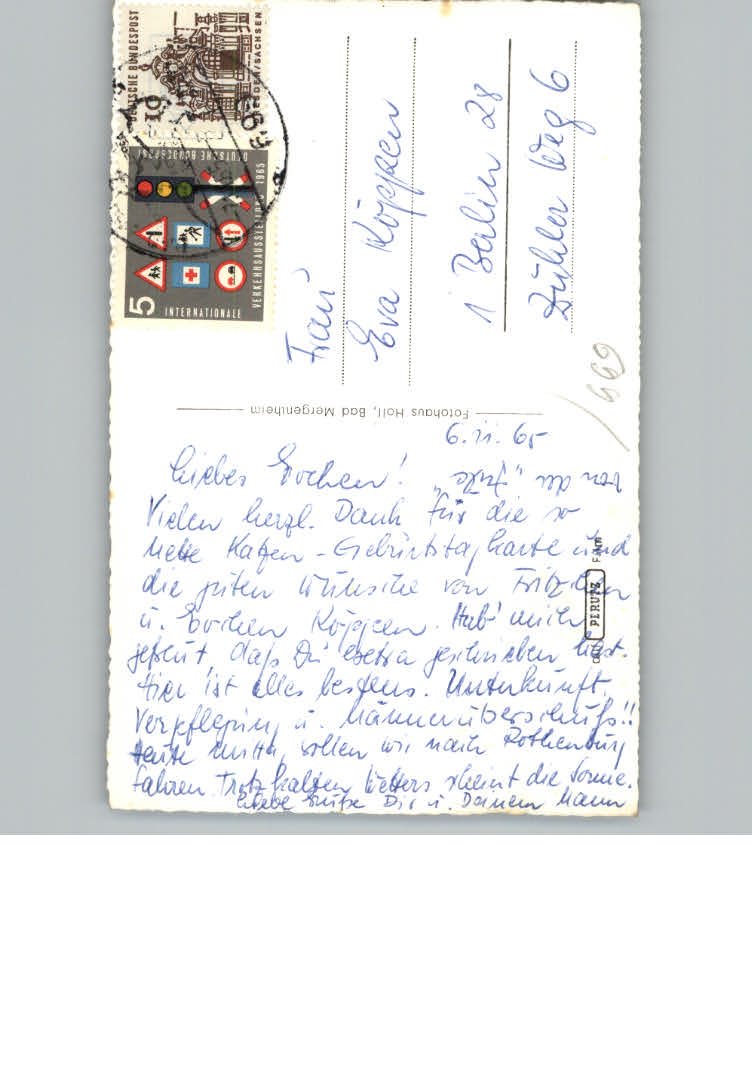 6.11.65
Liebes Evchen!
Vielen herzl. Dank für die so
nette Katzen-Geburtstagskarte und
die guten Wünsche von Fritzchen
u. Evchen Köppen. Hab' mich
gefreut, daß Du extra geschrieben hast.
Hier ist alles bestens. Unterkunft,
Verpflegung u. Männerüberschuß!!
Heute mittag wollen wir nach Rothenburg
fahren. Trotz kalten Wetters scheint die Sonne.
Liebe Grüße Dir u. Deinem Mann
von der
Frau
Eva Köppen
1 Berlin 28
Dühler Weg 6
669
Fotohaus Holl, Bad Mergentheim
PERUTZ
DEUTSCHE BUNDESPOST
10
DRESDEN/SACHSEN
DEUTSCHE BUNDESPOST
5
INTERNATIONALE
VERKEHRSAUSSTELLUNG 1965
699